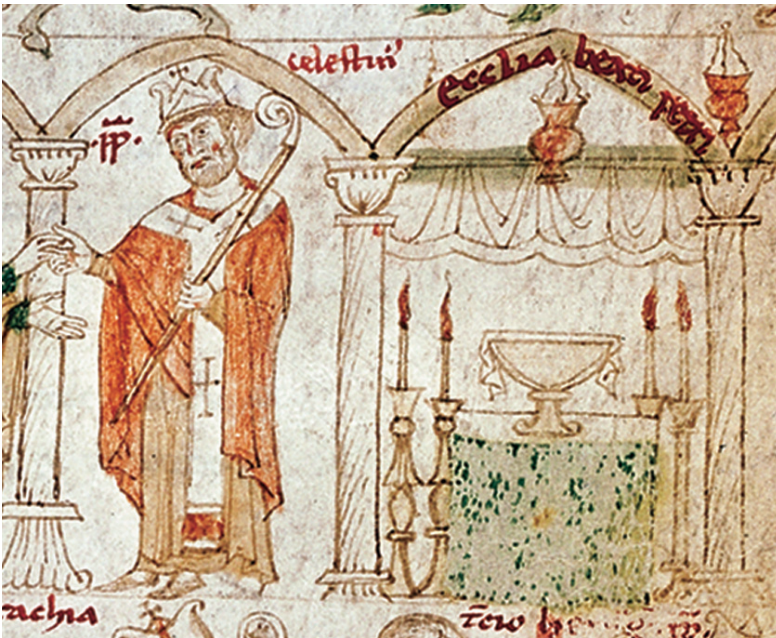 ·PP·
celestin'
ecclia beati petri
achia
tcio